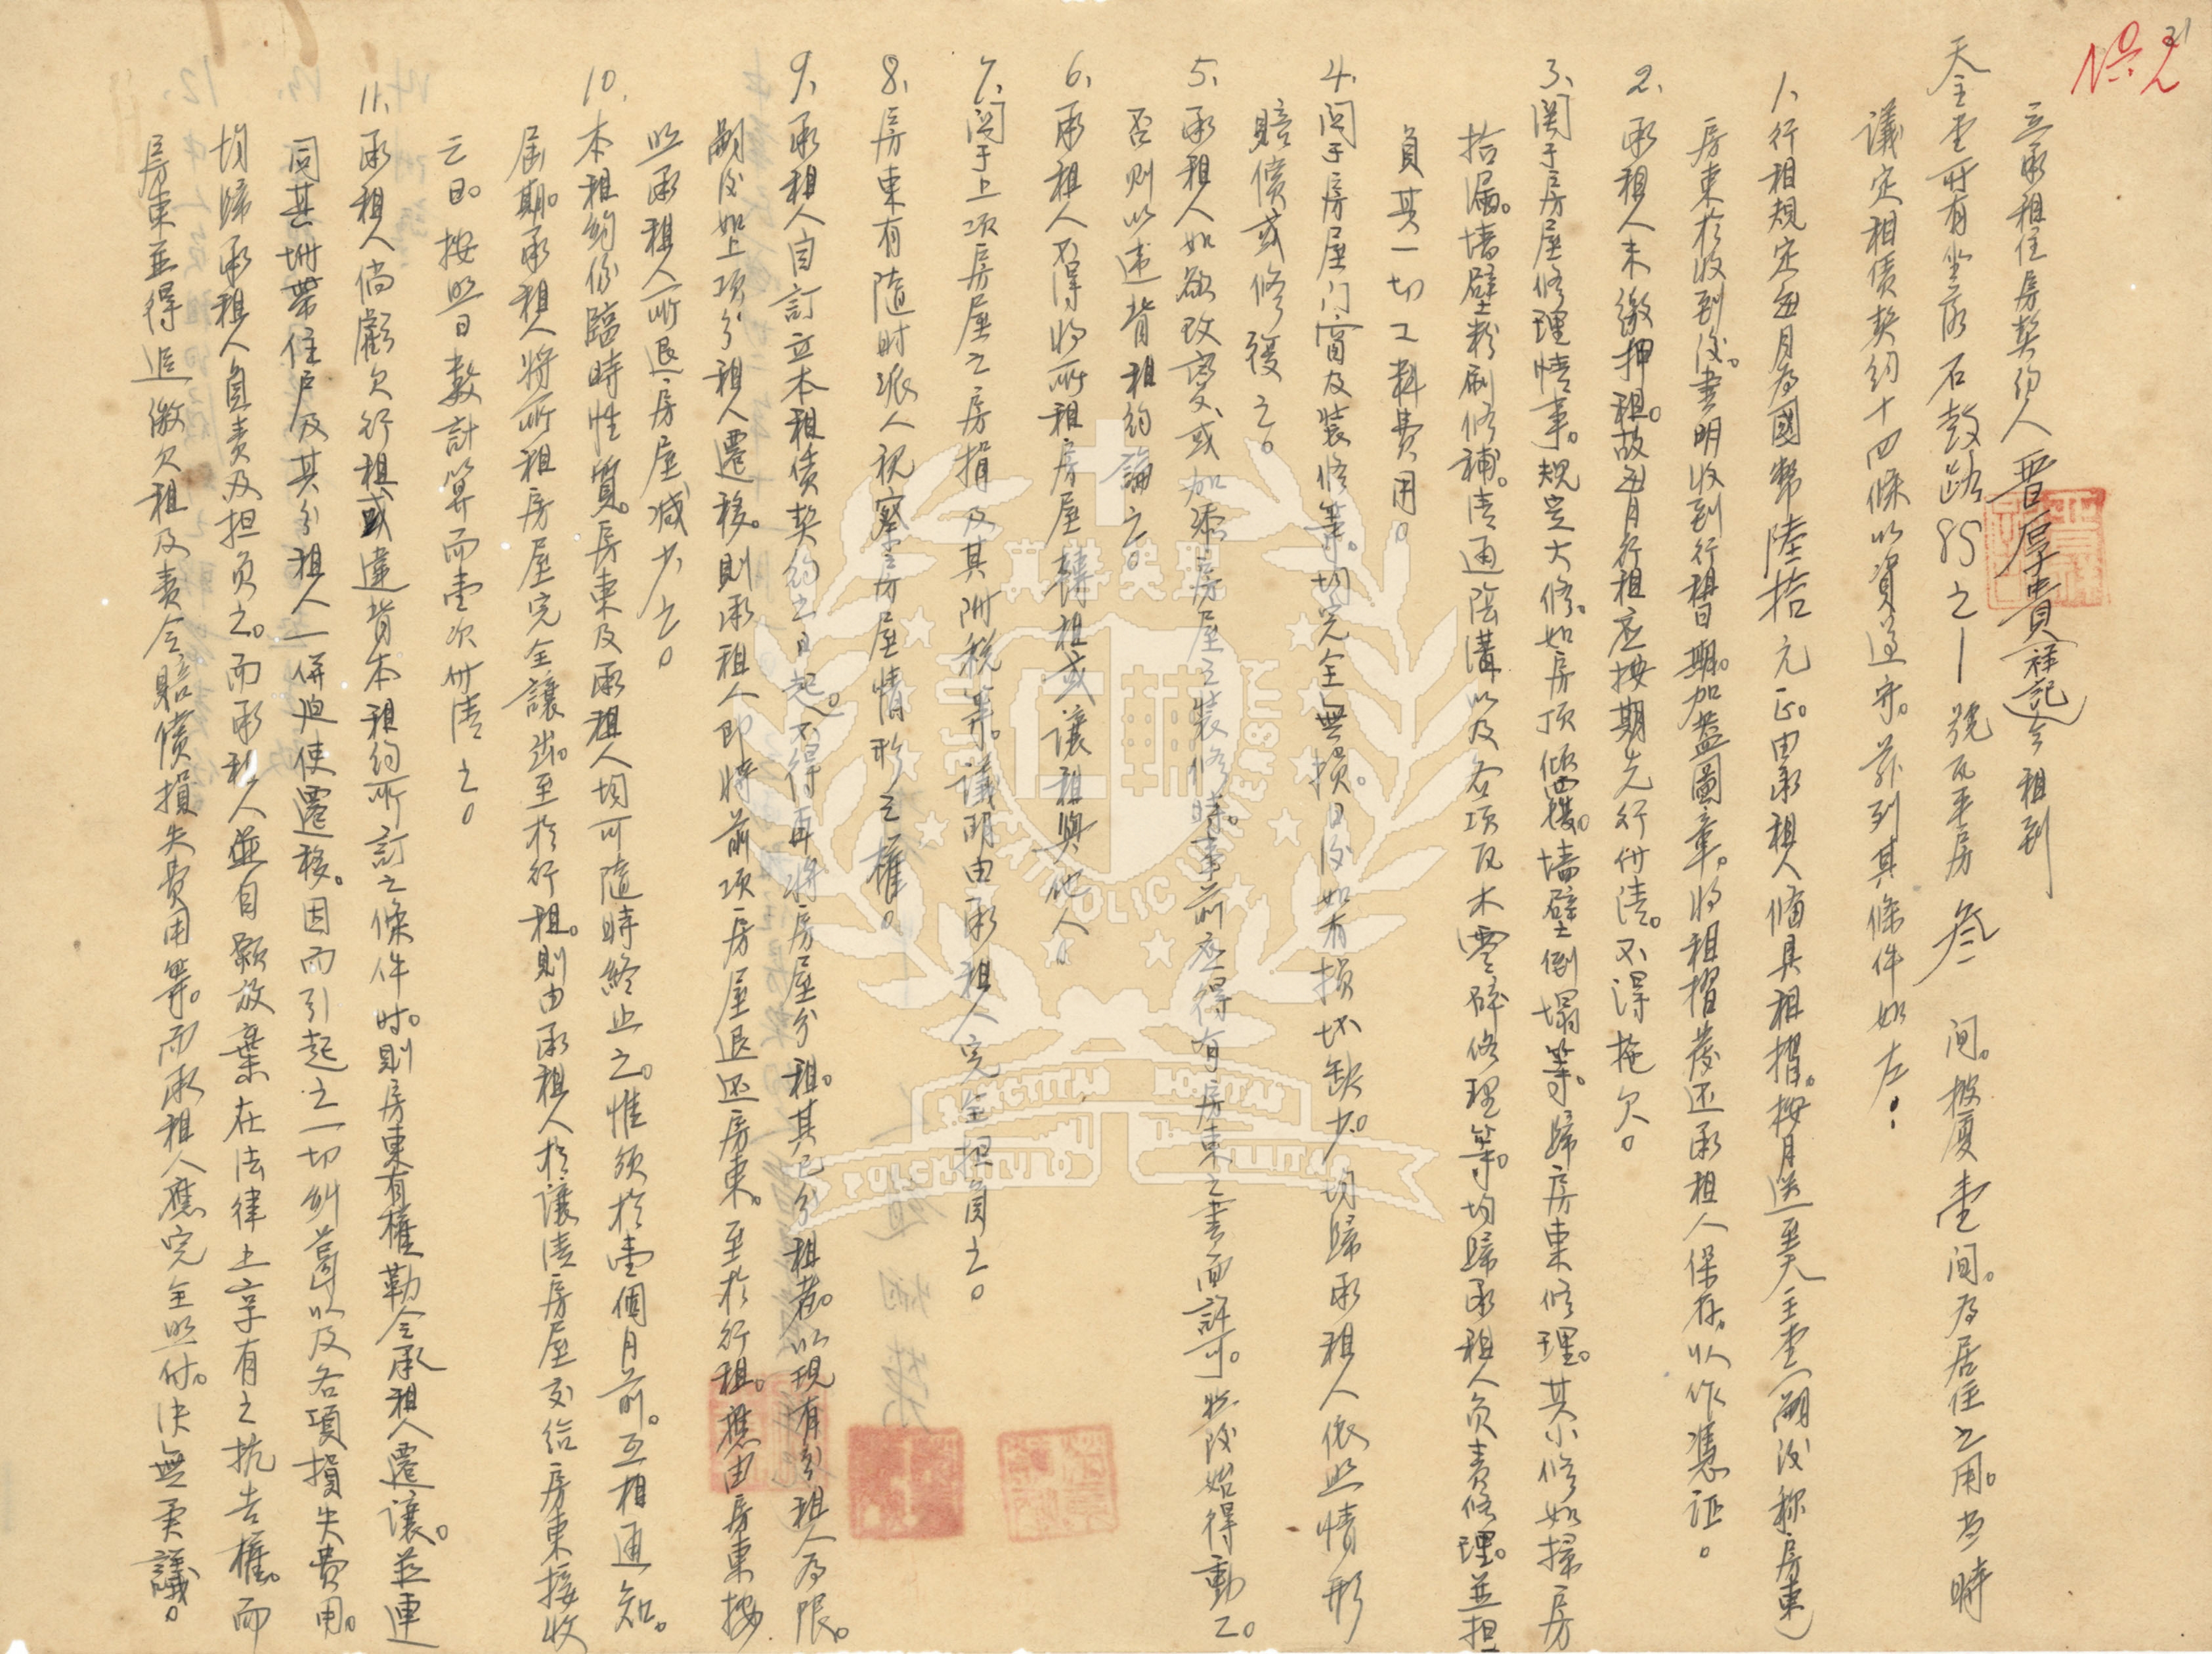 No. 2
21
立承租住房契約人晋厚貴祥記今租到
天主堂所有坐落石鼓路85之一號瓦平房叁間。披廈壹間。為居住之用。当時
議定租賃契約十四條以資遵守。茲列其條件如左:
1、行租規定每月為國幣陸拾元正。由承租人備具租摺。按月送至天主堂(嗣後称房東)
房東於收到後。書明收到行租日期。加蓋圖章。将租摺發还承租人保存。以作憑证。
2、承租人未繳押租。故每月行租应按期先行付清。不得拖欠。
3、関于房屋修理情事。規定大修。如房頂傾毀。墙壁倒塌等。歸房東修理。其小修如掃房
拾漏。墙壁粉刷修補。清通陰溝以及各項瓦木零碎修理等。均歸承租人负责修理。並担
負其一切工料費用。
4、関于房屋门窗及装修等。均完全無損。日後如有損坏缺少。均歸承租人依照情形
賠償或修復之。
5、承租人如欲改变或加添房屋之装修時。事前应得有房東之書面許可。然後始得動工。
否则以违背租約論之。
6、承租人不得将所租房屋轉租或讓租與他人。
7、関于上項房屋之房捐及其附税等。議明由承租人完全担負之。
8、房東有隨时派人視察房屋情形之權。
9、承租人自訂立本租賃契約之日起。不得再将房屋分租。其已分租者。以現有分租人為限。
嗣後如上項分租人遷移。則承租人即将前項房屋退还房東。至於行租。應由房東按
照承租人所退房屋減少之。
10、本租約係臨時性質。房東及承租人均可隨時終止之。惟須於壹個月前。互相通知。
届期。承租人将所租房屋完全讓出。至於行租。則由承租人於讓清房屋交给房東接收
之日。按照日數計算而壹次付清之。
11、承租人倘虧欠行租或違背本租約所訂之條件时。則房東有權勒令承租人遷讓。並連
同其坿帶住户及其分租人一併迫使遷移。因而引起之一切糾葛以及各項損失費用。
均歸承租人負责及担负之。而承租人並自願放棄在法律上享有之抗告權。而
房東並得追繳欠租及责令賠償損失費用等。而承租人應完全照付。决無異議。